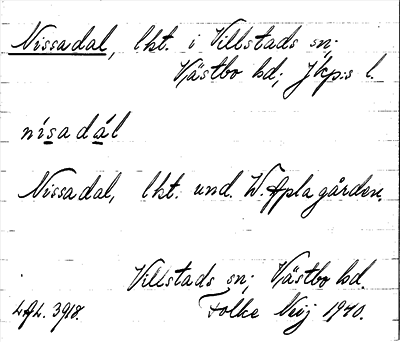 Nissadal, lht. i Villstads sn;
Västbo hd; Jkp:s l.
nísadál
Nissadal, lht. und. W. Aplagården.
Villstads sn; Västbo hd.
Folke Neij 1940.